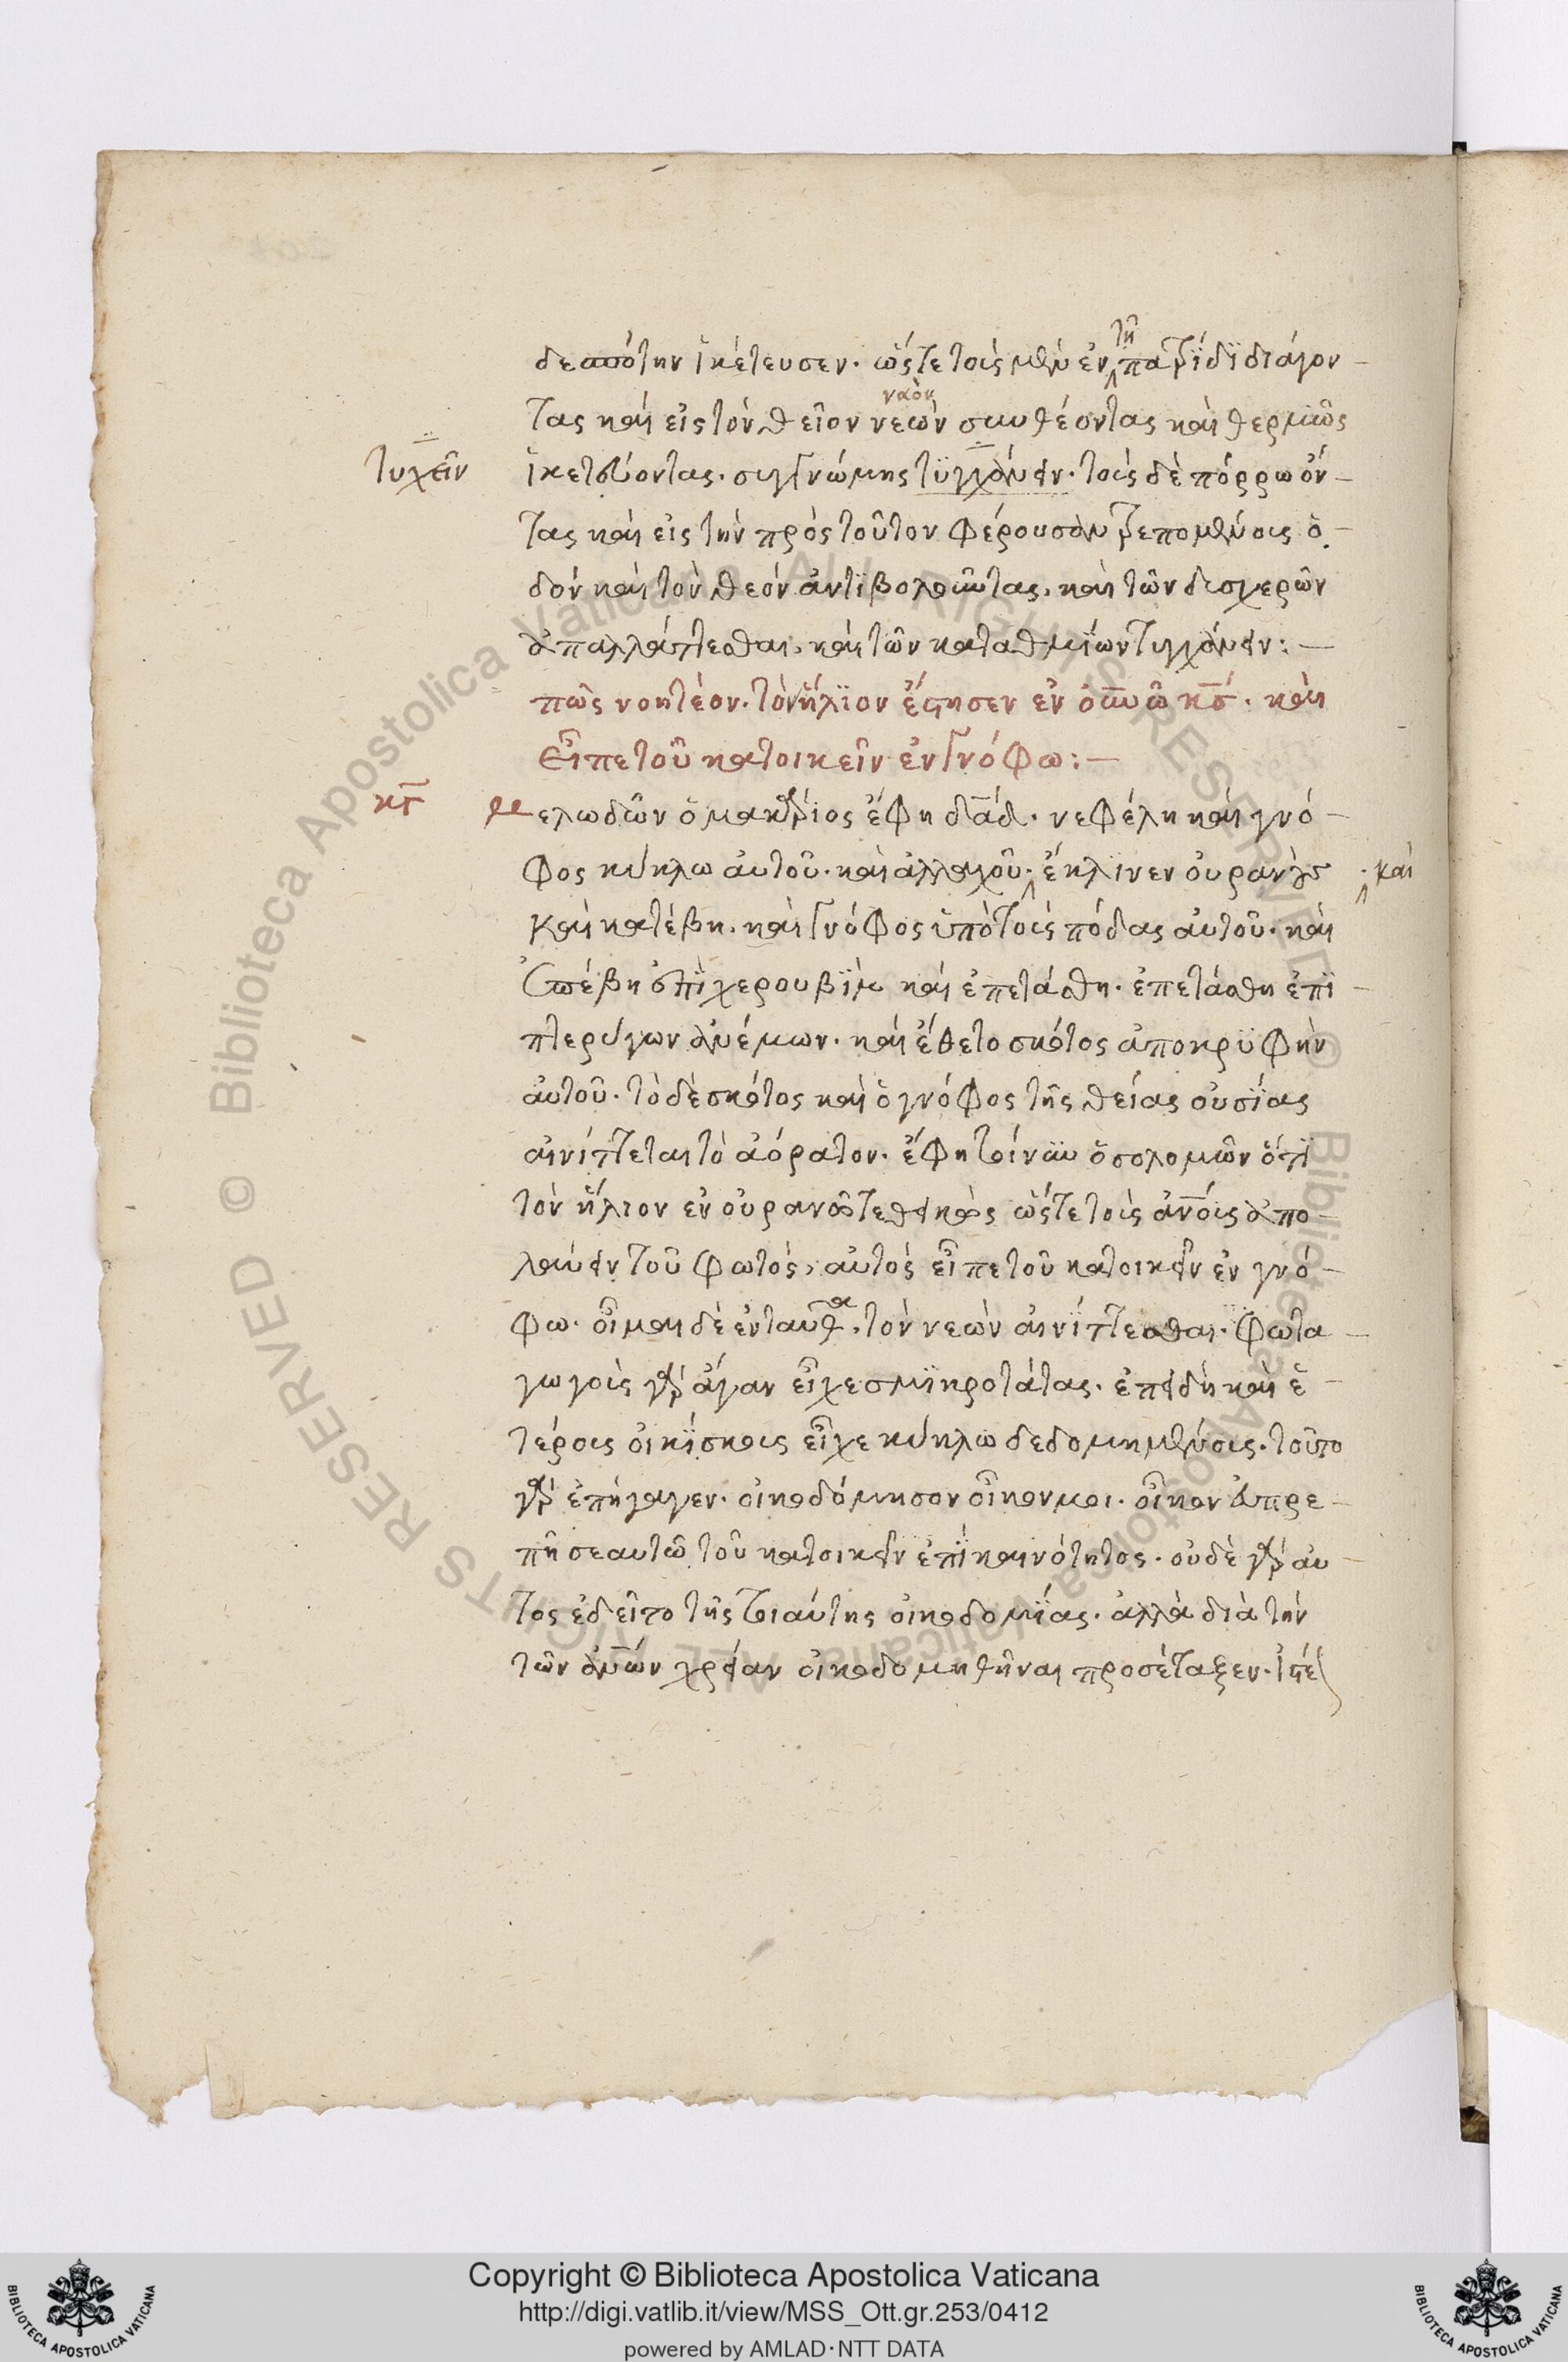 δεσπότην ἱκέτευσεν. ὥστε τοὺς μὲν ἐν τῇ πατρίδι διάγον-
τας καὶ εἰς τὸν θεῖον νεὼν συνθέοντας καὶ θερμῶς
ναὸν
τυχεῖν ἱκετεύοντας. συγγνώμης τυγχάνειν. τοὺς δὲ πόρρω ὄν-
τας καὶ εἰς τὴν πρὸς τοῦτον φέρουσαν τρεπομένους ὁ-
δὸν καὶ τὸν θεὸν ἀντιβολοῦντας, καὶ τῶν δυσχερῶν
ἀπαλλάττεσθαι, καὶ τῶν καταθυμίων τυγχάνειν:—
πῶς νοητέον. τὸν ἥλιον ἔστησεν ἐν οὐνῶ κς. καὶ
εἶπε τοῦ κατοικεῖν ἐν γνόφω:—
κγ μελωδῶν ὁ μακάριος ἔφη δαδ. νεφέλη καὶ γνό-
φος κύκλω αὐτοῦ. καὶ ἀλλαχοῦ. καὶ ἔκλινεν οὐρανοὺς
καὶ κατέβη. καὶ γνόφος ὑπὸ τοὺς πόδας αὐτοῦ. καὶ
ἐπέβη ἐπὶ χερουβὶμ καὶ ἐπετάσθη. ἐπετάσθη ἐπὶ
πτερύγων ἀνέμων. καὶ ἔθετο σκότος ἀποκρυφὴν
αὐτοῦ. τὸ δὲ σκότος καὶ ὁ γνόφος τῆς θείας οὐσίας
αἰνίττεται τὸ ἀόρατον. ἔφη τοίνυν ὁ σολομῶν ὅτι
τὸν ἥλιον ἐν οὐρανῶ τεθεικὼς ὥστε τοὺς ἀνους ἀπο-
λαύειν τοῦ φωτὸς, αὐτὸς εἶπε τοῦ κατοικεῖν ἐν γνό-
φω. οἶμαι δὲ ἐνταῦθα, τὸν νεὼν αἰνίττεσθαι. φωτα-
γωγοὺς γὰρ ἄγαν εἶχε σμικροτάτας. ἐπειδὴ καὶ ἑ-
τέρους οἰκίσκους εἶχε κύκλω δεδομημένους. τοῦτο
γὰρ ἐπήγαγεν. οἰκοδόμησον οἶκον μοι. οἶκον εὐπρε-
πῆ σεαυτῶ τοῦ κατοικεῖν ἐπὶ καινότητος. οὐδὲ γὰρ αὐ-
τὸς ἐδεῖτο τῆς τοιαύτης οἰκοδομίας. ἀλλὰ διὰ τὴν
τῶν ἀνων χρείαν οἰκοδομηθῆναι προσέταξεν.
Copyright © Biblioteca Apostolica Vaticana
http://digi.vatlib.it/view/MSS_Ott.gr.253/0412
powered by AMLAD·NTT DATA